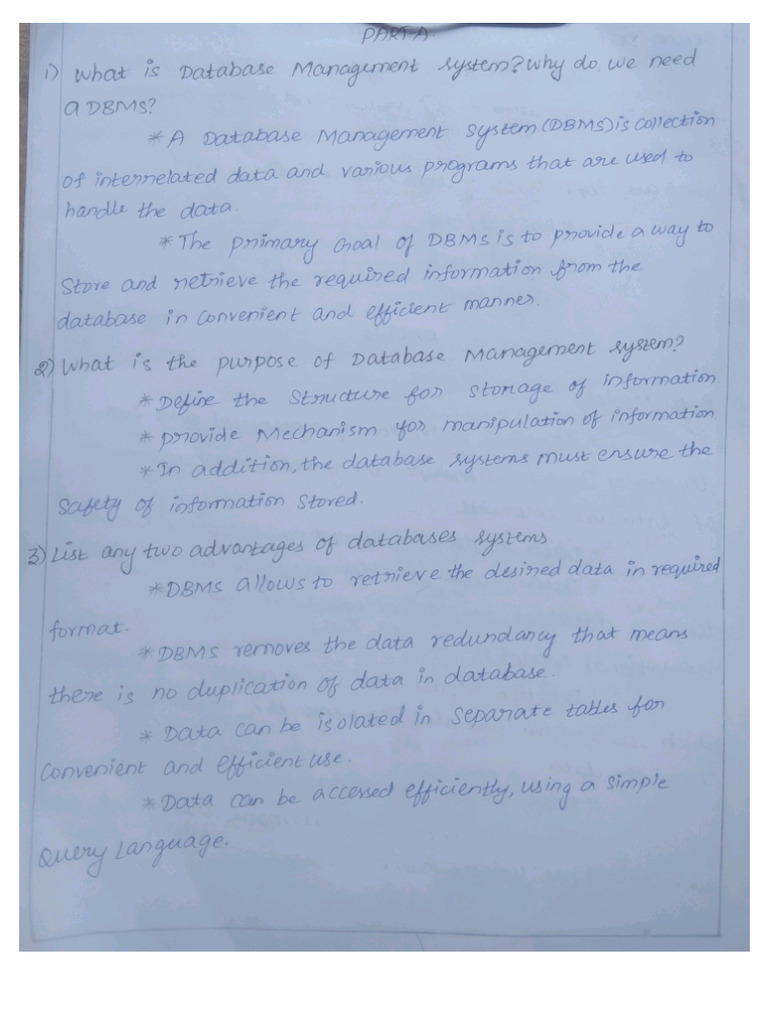 PART-A
1) What is Database Management System? Why do we need
a DBMS?
* A Database Management System (DBMS) is collection
of interrelated data and various programs that are used to
handle the data.
* The primary Goal of DBMS is to provide a way to
Store and retrieve the required information from the
database in convenient and efficient manner.
2) What is the purpose of Database Management System?
* Define the Structure for storage of information
* provide Mechanism for manipulation of information
* In addition, the database systems must ensure the
Safety of information Stored.
3) List any two advantages of databases systems
* DBMS allows to retrieve the desired data in required
format.
* DBMS removes the data redundancy that means
there is no duplication of data in database.
* Data can be isolated in separate tables for
Convenient and efficient use.
* Data can be accessed efficiently, using a simple
Query Language.